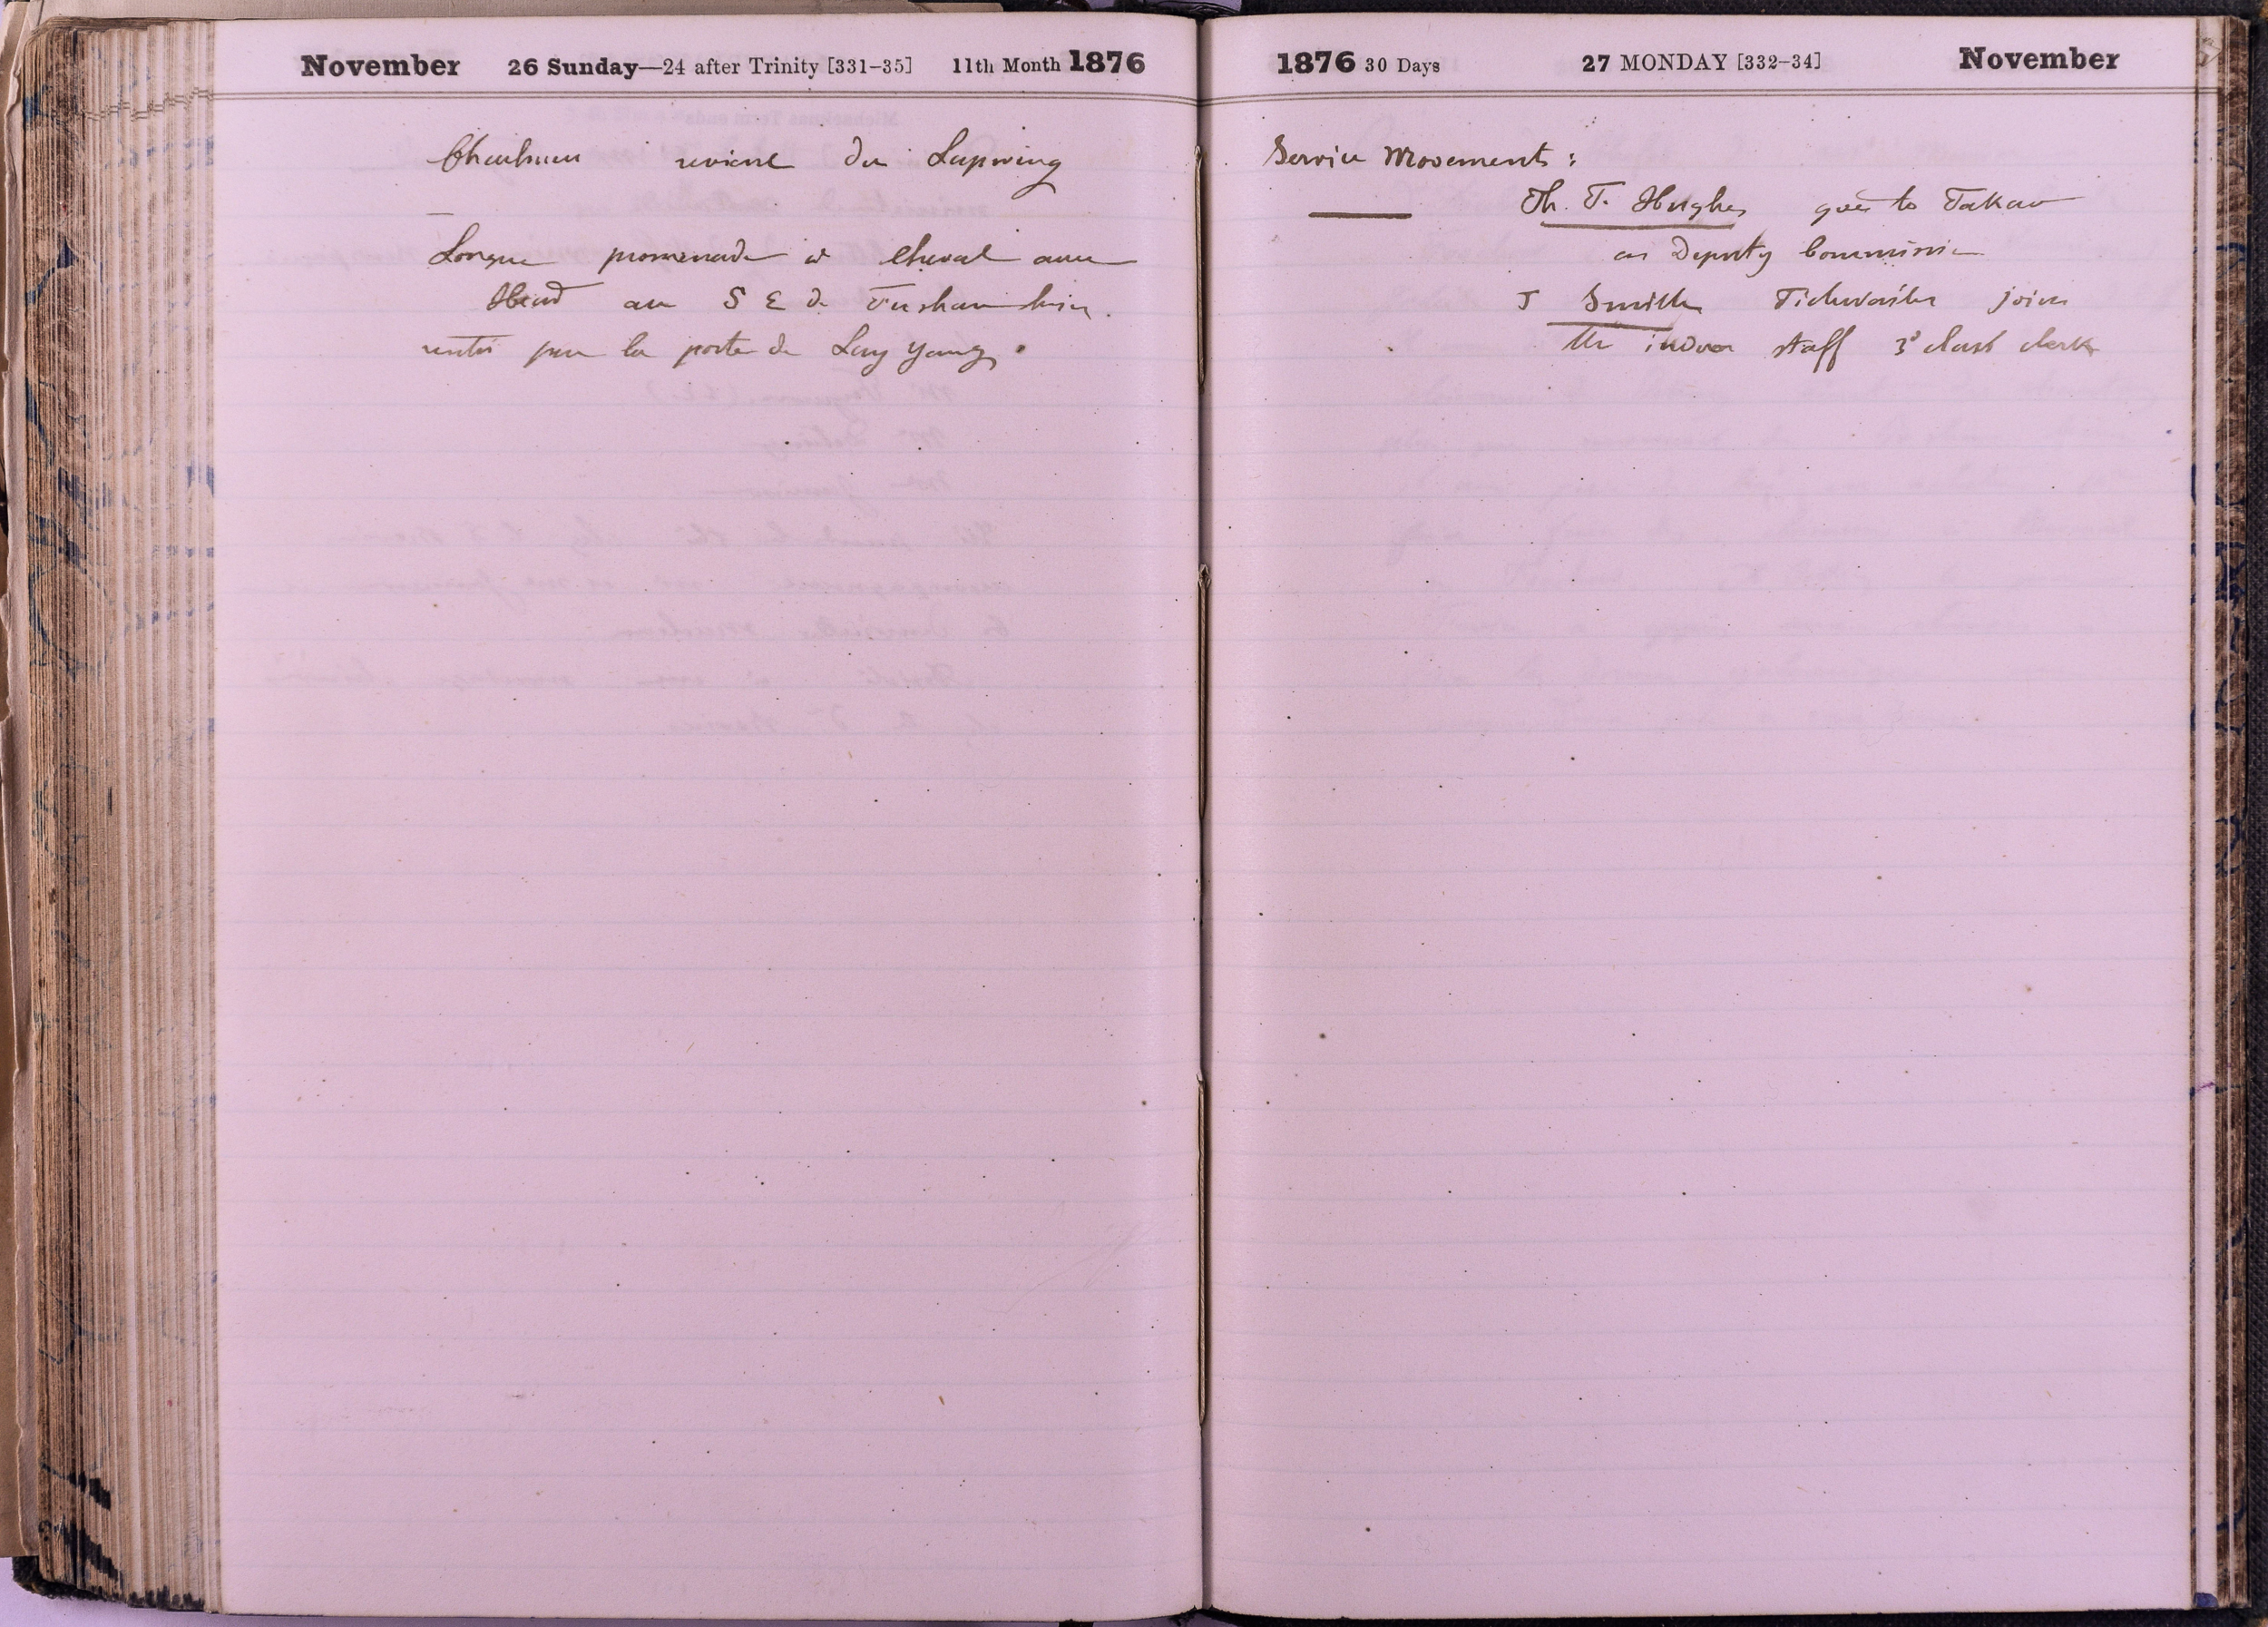 November 26 Sunday—24 after Trinity [331-35] 11th Month 1876
revient du Lapwing
Longue promenade à cheval avec
Hind au S E de
rentré par la porte de Lay Yang.
1876 30 Days 27 MONDAY [332-34] November
Service Movements :
Th. T. Hughes goes to Takao
as Deputy Commissioner
J Smith Tidewaiter joins
the indoor staff 3d class clerk